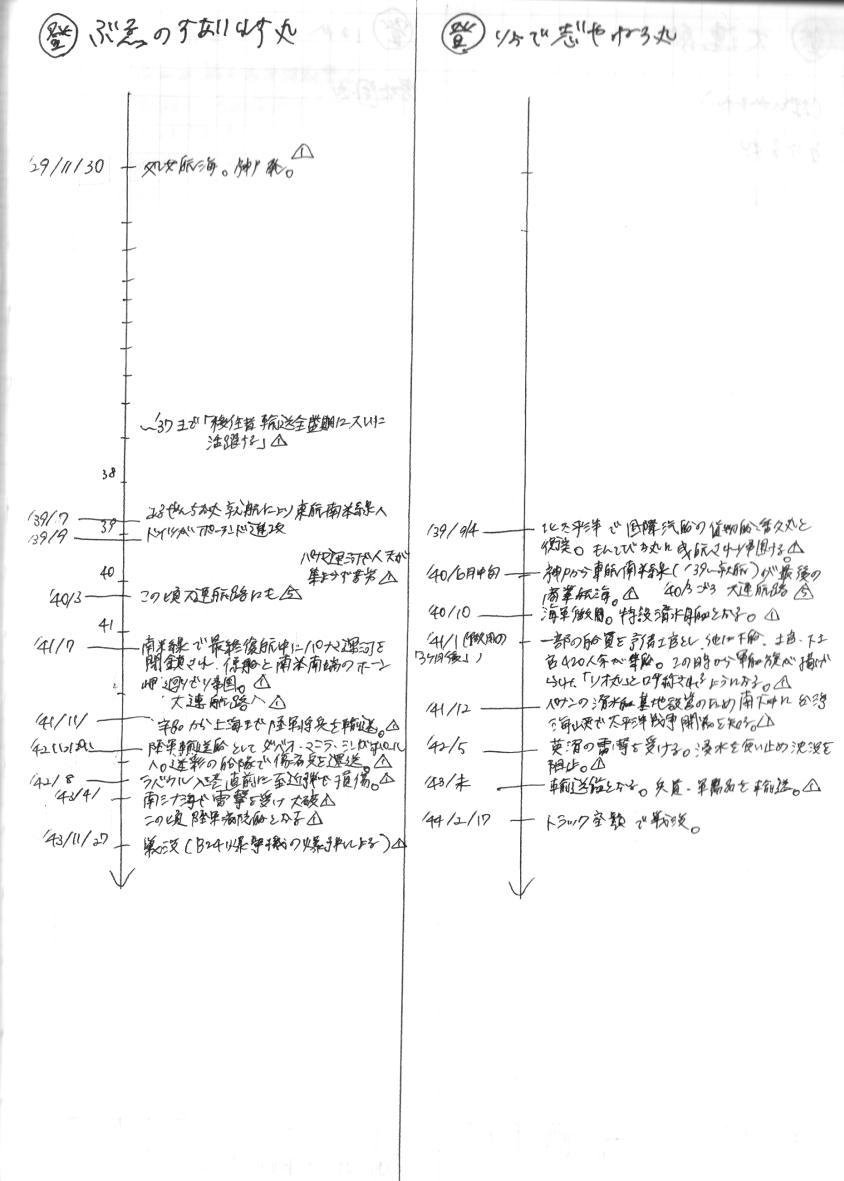 登 ぶゑのすあいれす丸
'29/11/30 処女航海。神戸発。△1
〜'37まで「移住者輸送全盛期に大いに
活躍する」△1
38
'39/7 あるぜんちな丸就航により東航南米線へ
39
'39/9 ドイツがポーランド進攻
パナマ運河が人夫が
集まらず △
40
'40/3 この頃大連航路にも △
41
'41/7 南米線で最終復航中にパナマ運河を
閉鎖され、僚船と南米南端のホーン
岬回りで帰国。△
大連航路へ △1
'41/11/ 宇品から上海まで陸軍将兵を輸送。△
陸軍輸送船として ダバオ・マニラ・シンガポール
へ。迷彩の船隊で傷病兵を運送。△
'42/8 ラバウル入港直前に至近弾で損傷。△
'43/4/ 南シナ海で雷撃を受け大破△
この頃 陸軍病院船となる△
'43/11/27 戦没(B24爆撃機の爆弾による)△
登 りおで志゛やねろ丸
'39/9/4 北太平洋で国際汽船の貨物船
する。△
'40/6月中旬 神戸から東航南米線('39〜就航)が最後の
商業航海。△ '40/3ごろ 大連航路 △
'40/10 海軍徴用。特設潜水母艦となる。△1
'41/1(徴用の
「3ヶ月後」) 一部の船員を
官420人余が乗船。この時から軍艦旗が掲げ
られ、「リオ丸」と呼称されるようになる。△
'41/12 ペナンの潜水艦基地設営のため南下中に台湾
海峡で太平洋戦争開始を知る。△
'42/5 英潜の雷撃を受ける。浸水を食い止め沈没を
阻止。△
'43/末 輸送船となる。兵員・軍需品を輸送。△
'44/2/17 トラック空襲で戦没。